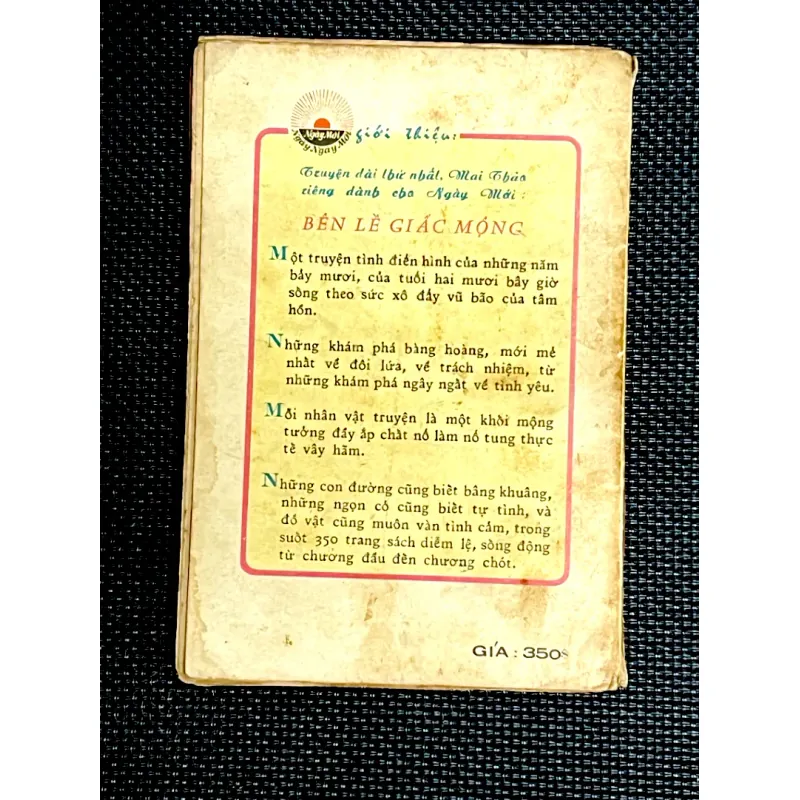 Ngày Mới
Ngày Ngày Mới
giới thiệu:
Truyện dài thứ nhất, Mai Thảo
riêng dành cho Ngày Mới:
BÊN LỀ GIẤC MỘNG
Một truyện tình điển hình của những năm
bảy mươi, của tuổi hai mươi bây giờ
sống theo sức xô đẩy vũ bão của tâm
hồn.
Những khám phá bàng hoàng, mới mẻ
nhất về đôi lứa, về trách nhiệm, từ
những khám phá ngây ngất về tình yêu.
Mỗi nhân vật truyện là một khối mộng
tưởng đầy ắp chất nổ làm nổ tung thực
tế vây hãm.
Những con đường cũng biết bâng khuâng,
những ngọn cỏ cũng biết tự tình, và
đồ vật cũng muôn vàn tình cảm, trong
suốt 350 trang sách diễm lệ, sống động
từ chương đầu đến chương chót.
GIÁ : 350$